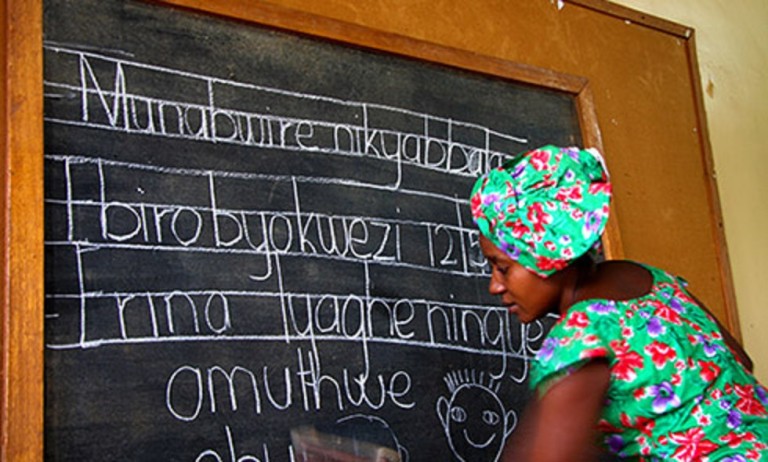 Munabwire nikyabbala
Ebiro byokwezi 12/5
Erina lyaghe ningye
omuthwe